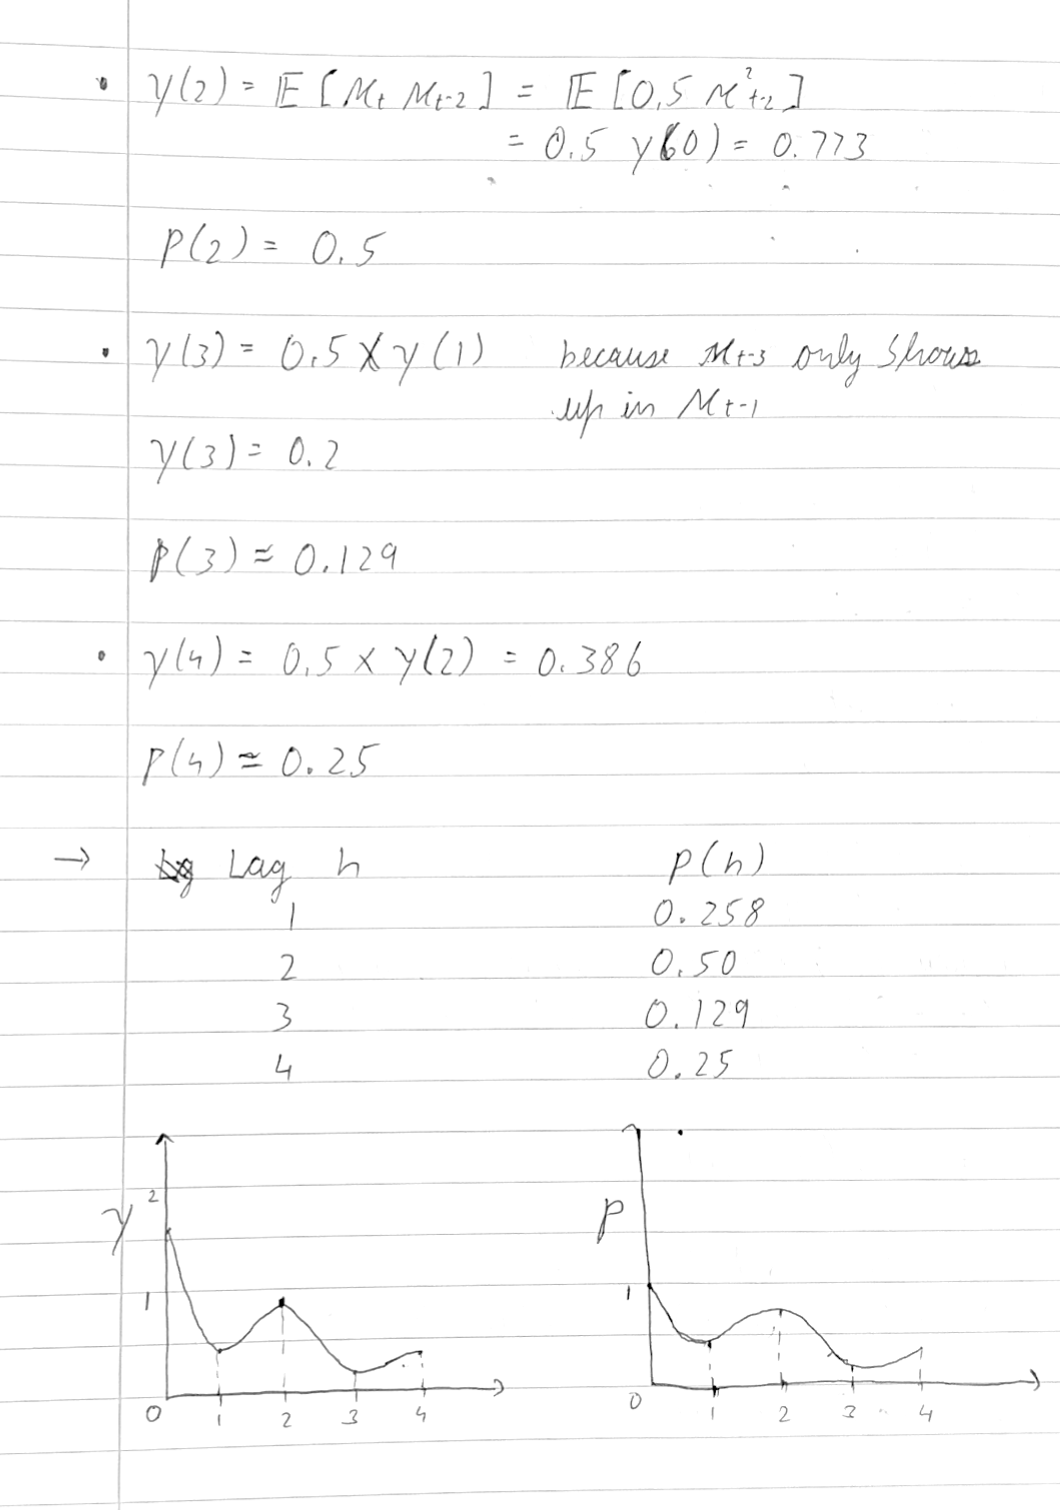 • γ(2) = 𝔼 [Mt Mt-2] = 𝔼 [0,5 M²t-2]
= 0.5 γ(0) = 0.773
ρ(2) = 0.5
• γ(3) = 0.5 × γ(1) because Mt-3 only shows
up in Mt-1
γ(3) = 0.2
ρ(3) ≈ 0.129
• γ(4) = 0.5 × γ(2) = 0.386
ρ(4) ≈ 0.25
→ Lag h ρ(h)
1 0.258
2 0.50
3 0.129
4 0.25
γ 2 1 0 1 2 3 4
ρ 1 0 1 2 3 4